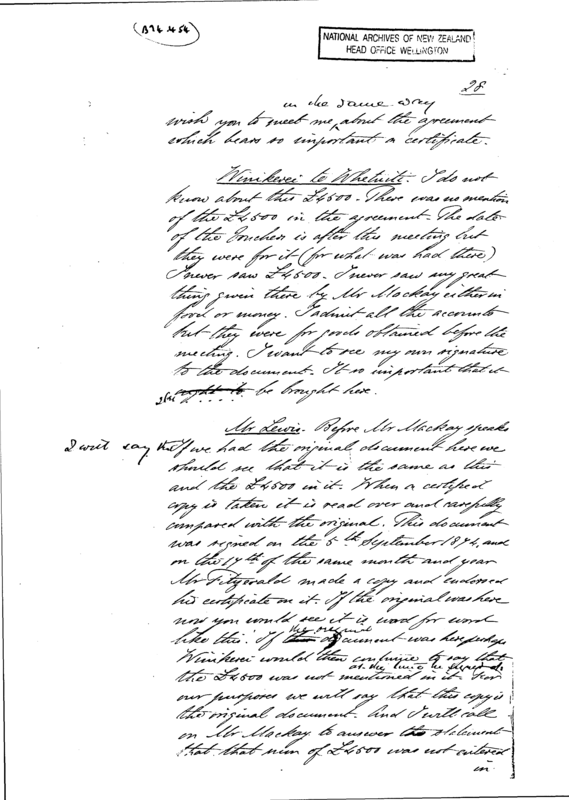 (B74.454)
NATIONAL ARCHIVES OF NEW ZEALAND
HEAD OFFICE WELLINGTON
28
in the same way
wish you to meet me about the agreement
which bears so important a certificate.
Winikerei to Whetuiti. I do not
know about this £4500. There was no mention
of the £4500 in the agreement. The date
of the Vouchers is after this meeting but
they were for it (for what was had there)
I never saw £4500. I never saw any great
thing given there by Mr Mackay either in
food or money. I admit all the accounts
but they were for goods obtained before the
meeting. I want to see my own signature
to the document. It so important that it
ought to be brought here.
Mr Lewis. Before Mr Mackay speaks
I will say that if we had the original document here we
should see that it is the same as this
and the £4500 in it. When a certified
copy is taken it is read over and carefully
compared with the original. This document
was signed on the 5th September 1874, and
on the 17th of the same month and year
Mr Fitzgerald made a copy and endorsed
his certificate on it. If the original was here
now you would see it is word for word
like this. If the original document was here perhaps
Winikerei would then continue to say that
at the time he signed it
the £4500 was not mentioned in it. For
our purposes we will say that this copy is
the original document. And I will call
on Mr Mackay to answer the statement
that that sum of £4500 was not entered
in